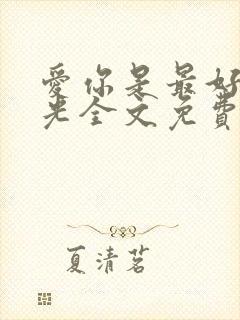 爱你是最好
光全文免费
夏清茗